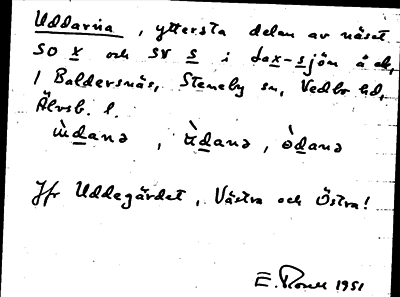 Uddarna, yttersta delen av näset
SO x och SV s i Lax-sjön å ek,
1 Baldersnäs, Steneby sn, Vedbo hd,
Älvsb. l.
ùdanə, ùdanə, òdanə
Jfr Uddegärdet, Västra och Östra!
E. 1951